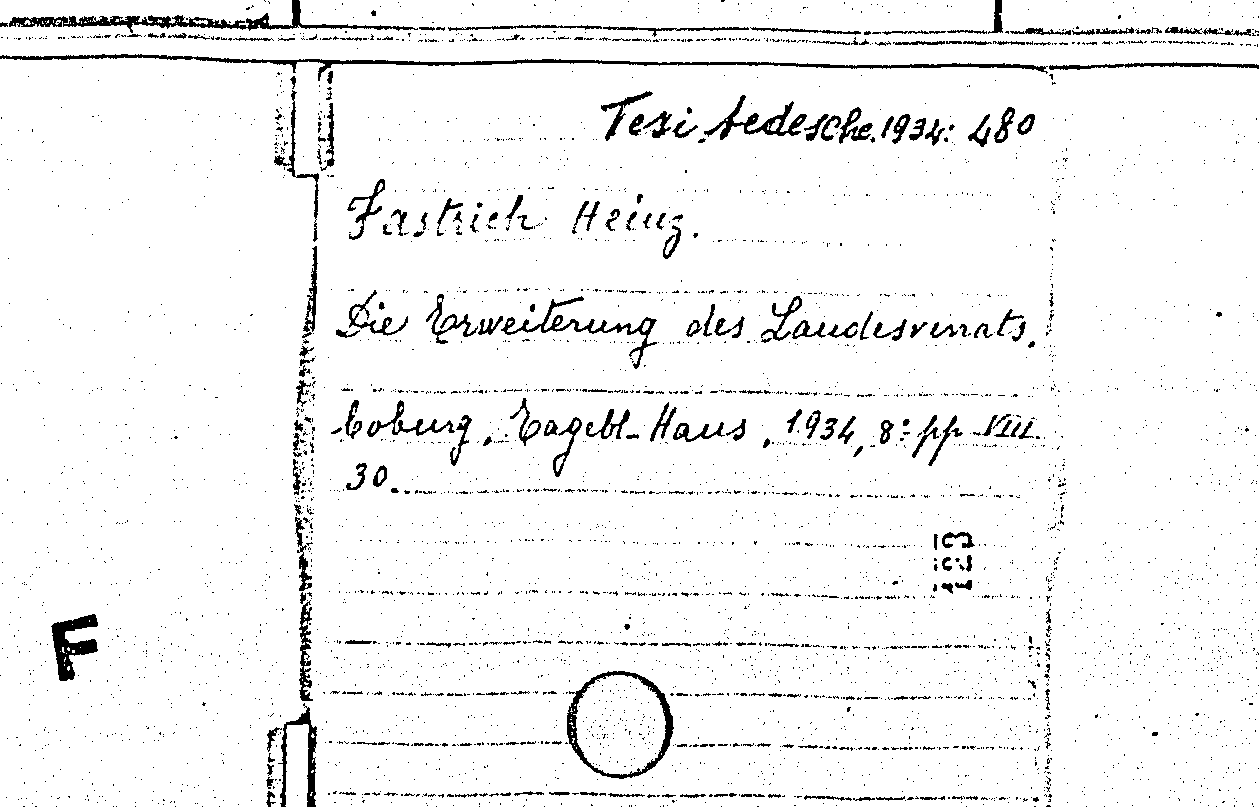 Tesi tedesche.1934: 480
Fastrich Heinz.
Die Erweiterung des Landesverrats.
Coburg, Tagebl-Haus, 1934, 8: pp VIII.
30.
123
F